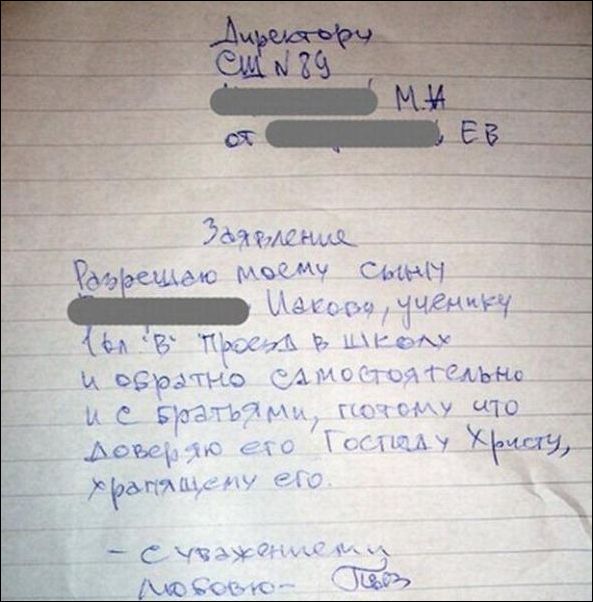 Директору
СШ N 89
М.И
от ЕВ
Заявление
Разрешаю моему сыну
Иакову, ученику
1 кл "В" проезд в школу
и обратно самостоятельно
и с братьями, потому что
доверяю его Господу Христу,
хранящему его.
- с уважением и
любовю -